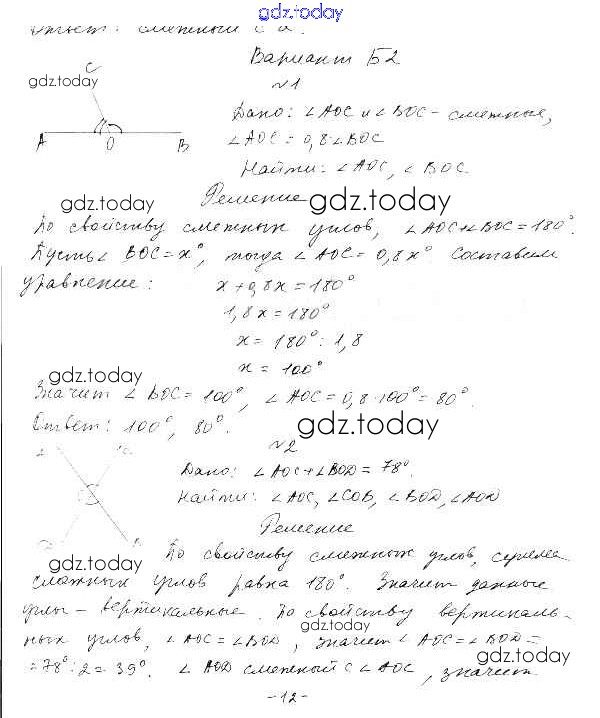 gdz.today
смежный с
Вариант Б2
C
gdz.today
№1
Дано: ∠AOC и ∠BOC - смежные,
A O B
∠AOC = 0,8·∠BOC
Найти: ∠AOC, ∠BOC.
Решение
gdz.today gdz.today
По свойству смежных углов, ∠AOC+∠BOC = 180°.
Пусть ∠BOC = x°, тогда ∠AOC = 0,8x° Составим
уравнение: x + 0,8x = 180°
1,8x = 180°
x = 180° : 1,8
x = 100°
gdz.today
Значит ∠BOC = 100°, ∠AOC = 0,8·100° = 80°.
Ответ: 100°, 80°.
gdz.today
№2
Дано: ∠AOC+∠BOD = 78°.
Найти: ∠AOC, ∠COB, ∠BOD, ∠AOD
Решение
По свойству смежных углов, сумма
gdz.today
смежных углов равна 180°. Значит данные
углы - вертикальные. По свойству вертикаль-
gdz.today
ных углов, ∠AOC = ∠BOD, значит ∠AOC = ∠BOD =
gdz.today
= 78° : 2 = 39°. ∠AOD смежный с ∠AOC, значит
-12-